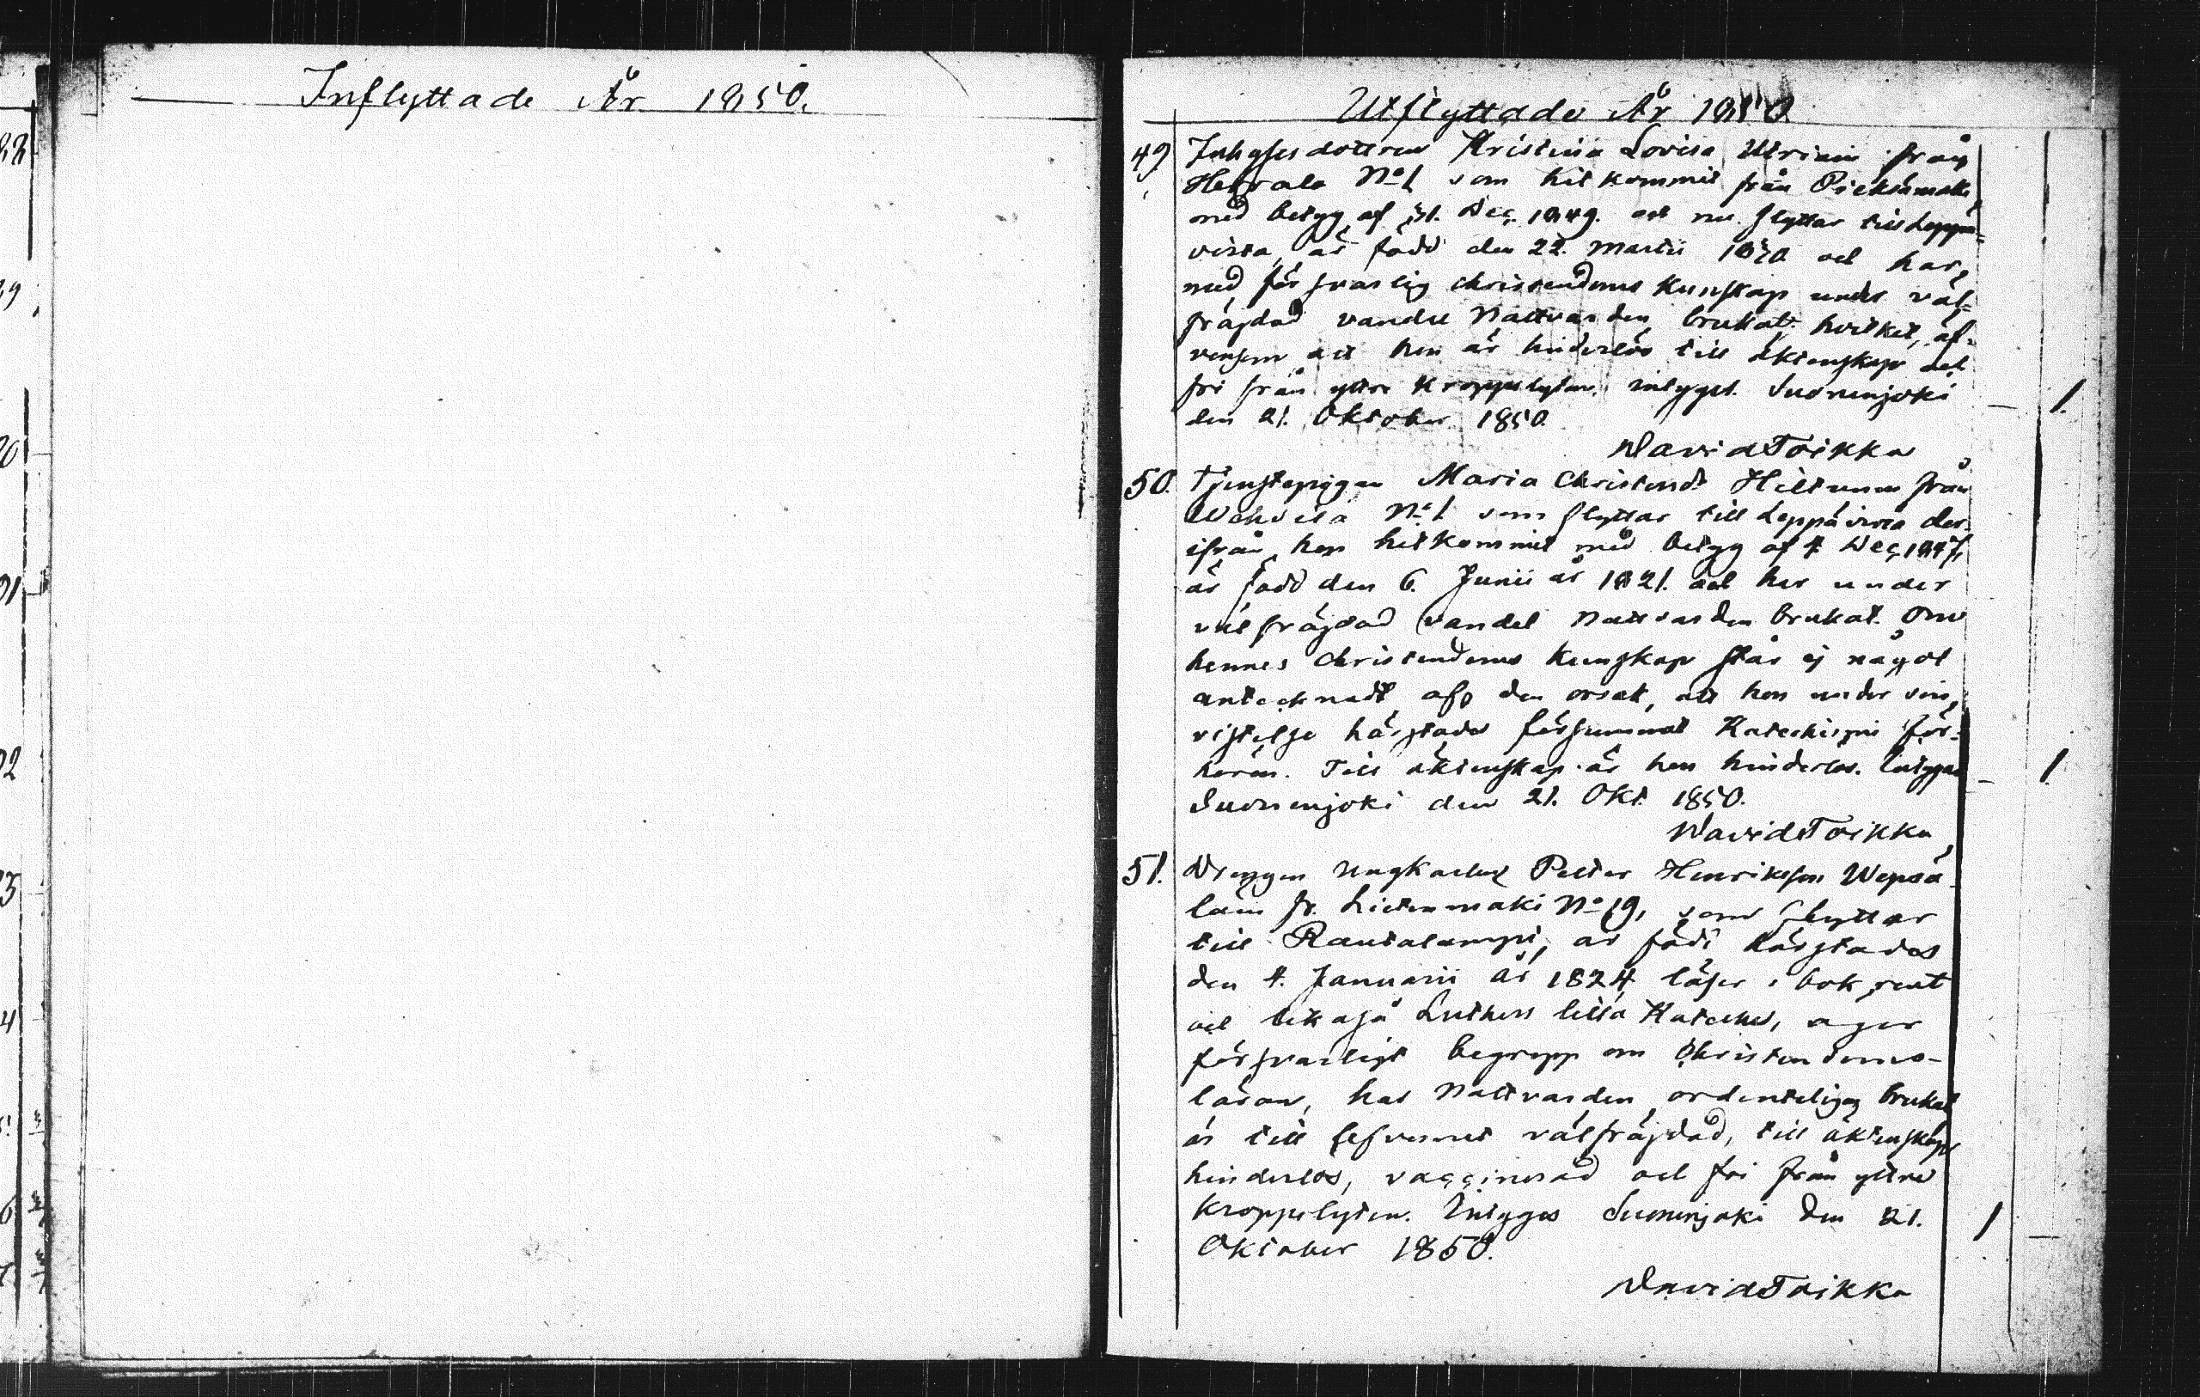 Inflyttade År 1850.
Utflyttade År 1850
49. Inhyses dottren Kristina Lovisa från
No 1 som hit kommit från Pieksämäki
med betyg af 31. Dec. 1849. och nu flyttar till Leppä-
virta, är född den 22. Martii och har,
med försvarlig christendoms kunskap under väl-
frägdad vandel Nattvarden brukat: hvilket, äf-
vensom att hon är hinderlös till äktenskap och
fri från yttre kroppslyten, intygas. Suonenjoki
den 21. Oktober 1850.
David Toikka
50. Tjenstepigan Maria Christina Hiltunen från
No 1 som flyttar till Leppävirta der-
ifrån hon hitkommit med betyg af 4 Dec. 1847,
är född den 6. Junii år 1821. och har under
välfrägdad vandel Nattvarden brukat. Om
hennes christendoms kunskap står ej något
antecknadt, af den orsak, att hon under sin
vistelse härstädes försummat Katechismi för-
hören. Till äktenskap är hon hinderlös. Intygas
Suonenjoki den 21. Okt. 1850.
David Toikka
51. Drengen Ungkarlen Petter Henriksson Wepsä-
läin fr. Lietenmäki No 19, som flyttar
till Rautalampi, är född härstädes
den 4. Januarii år 1824 läser i bok rent
och likaså Luthers lilla Kateches, äger
försvarligt begrepp om Christendoms-
läran, har Nattvarden ordenteligen brukat
är till lefvernet välfrägdad, till äktenskap
hinderlös, vaccinerad och fri från yttre
kroppslyten. Intygas Suonenjoki den 21.
Oktober 1850.
David Toikka